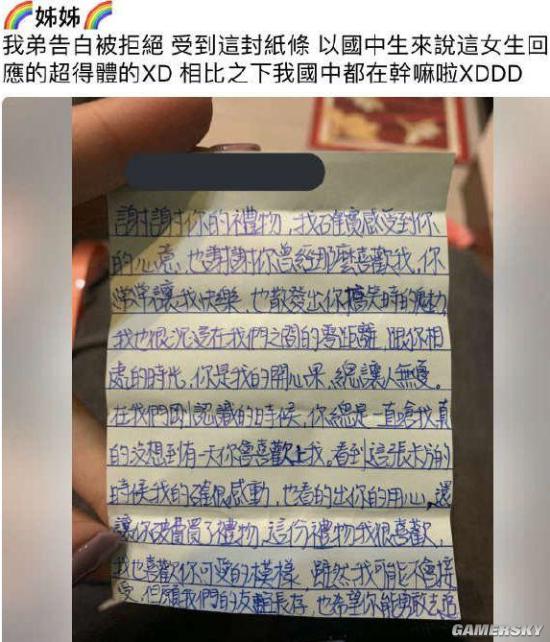 🌈姊姊🌈
我弟告白被拒絕 受到這封紙條 以國中生來說這女生回
應的超得體的XD 相比之下我國中都在幹嘛啦XDDD
謝謝你的禮物,我確實感受到你
的心意,也謝謝你曾經那麼喜歡我,你
常常讓我快樂,也散發出你搞笑時的魅力
我也很沉浸在我們之間的零距離,跟你相
處的時光,你是我的開心果,總讓人無憂。
在我們國小認識的時候,你總是一直嗆我,真
的沒想到有一天你會喜歡上我。看到這張卡片的
時候我的確很感動,也看的出你的用心,還
讓你破費買了禮物,這份禮物我很喜歡,
我也喜歡你可愛的模樣,雖然我可能不會接
受,但願我們的友誼長存,也希望你能勇敢去追
GAMERSKY